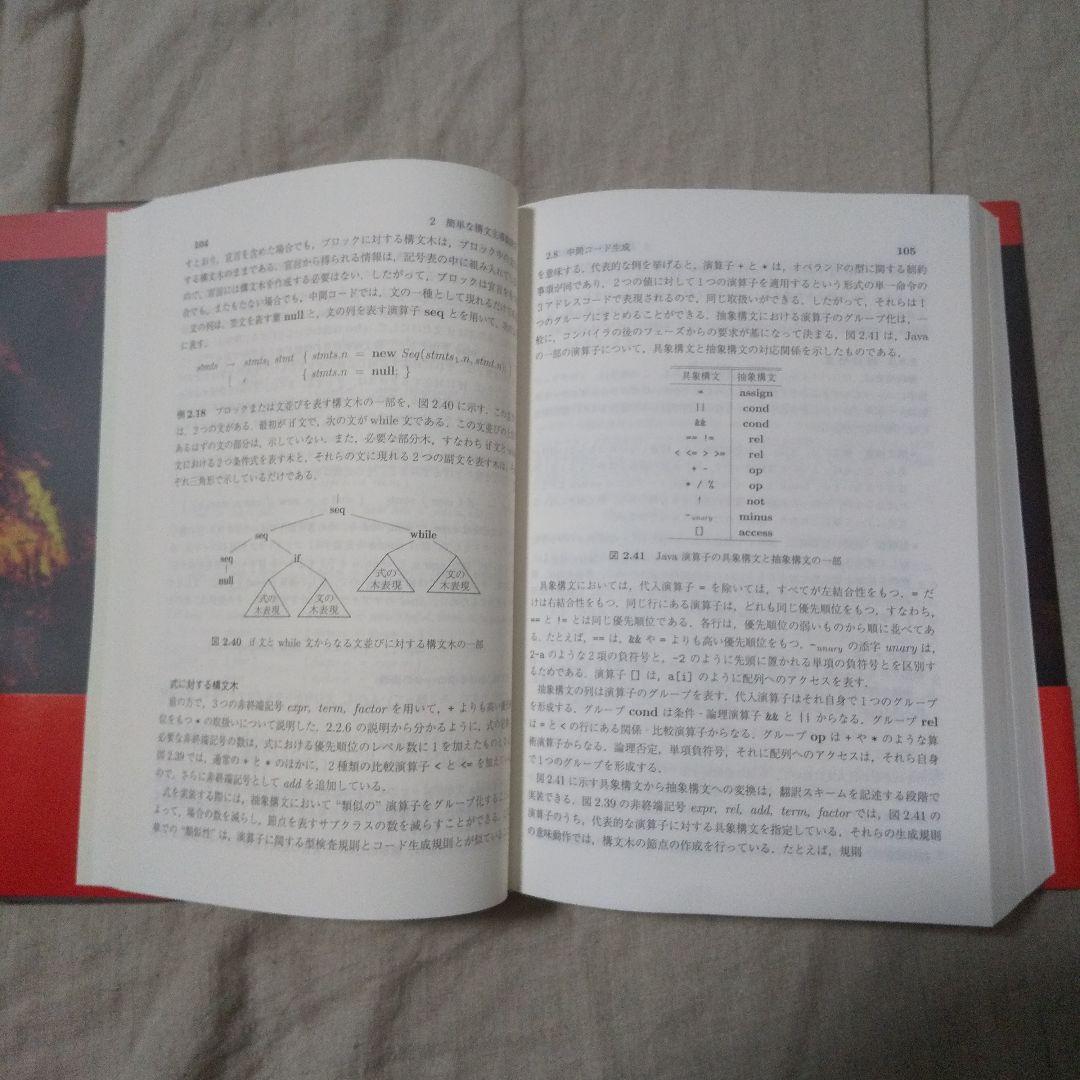 104
2 簡単な構文主導
すとおり，宣言を含めた場合でも，ブロックに対する構文木は，ブロック中の
する構文木のままである．宣言から得られる情報は，記号表の中に組み入れて
ので，宣言には構文木を作成する必要はない．したがって，ブロックは宣言を
合でも，またもたない場合でも，中間コードでは，文の一種として現れるだけ
文の列は，空文を表す葉 null と，文の列を表す演算子 seq とを用いて，次の
に表す．
stmts → stmts₁ stmt { stmts.n = new Seq(stmts₁.n, stmt.n); }
| ε { stmts.n = null; }
例 2.18 ブロックまたは文並びを表す構文木の一部を，図 2.40 に示す．この
は，2 つの文がある．最初が if 文で，次の文が while 文である．この文並びの
あるはずの文の部分は，示していない．また，必要な部分木，すなわち if 文と
文における 2 つ条件式を表す木と，それらの文に現れる 2 つの副文を表す木は，
それ三角形で示しているだけである．
seq
seq while
seq if
null
式の
木表現
文の
木表現
式の
木表現
文の
木表現
図 2.40 if 文と while 文からなる文並びに対する構文木の一部
式に対する構文木
前の方で，3 つの非終端記号 expr, term, factor を用いて，+ よりも高い
位をもつ * の取扱いについて説明した．2.2.6 の説明から分かるように，式の
必要な非終端記号の数は，式における優先順位のレベル数に 1 を加えたもの
図 2.39 では，通常の + と * のほかに，2 種類の比較演算子 < と <= を加えて
ので，さらに非終端記号として add を追加している．
式を実装する際には，抽象構文において “類似の” 演算子をグループ化する
よって，場合の数を減らし，節点を表すサブクラスの数を減らすことができる．
章での “類似性” は，演算子に関する型検査規則とコード生成規則とが似ている
2.8 中間コード生成
105
を意味する．代表的な例を挙げると，演算子 + と * は，オペランドの型に関する制約
事項が同であり，2 つの値に対して 1 つの演算子を適用するという形式の単一命令の
3 アドレスコードで表現されるので，同じ取扱いができる．したがって，それらは 1
つのグループにまとめることができる．抽象構文における演算子のグループ化は，一
般に，コンパイラの後のフェーズからの要求が基になって決まる．図 2.41 は，Java
の一部の演算子について，具象構文と抽象構文の対応関係を示したものである．
具象構文 抽象構文
= assign
|| cond
&& cond
== != rel
< <= > >= rel
+ - op
* / % op
! not
-unary minus
[] access
図 2.41 Java 演算子の具象構文と抽象構文の一部
具象構文においては，代入演算子 = を除いては，すべてが左結合性をもつ．= だ
けは右結合性をもつ．同じ行にある演算子は，どれも同じ優先順位をもつ，すなわち，
== と != とは同じ優先順位である．各行は，優先順位の弱いものから順に並べてあ
る．たとえば，== は，&& や = よりも高い優先順位をもつ．-unary の添字 unary は，
2-a のような 2 項の負符号と，-2 のように先頭に置かれる単項の負符号とを区別す
るためである．演算子 [] は，a[i] のように配列へのアクセスを表す．
抽象構文の列は演算子のグループを表す．代入演算子はそれ自身で 1 つのグループ
を形成する．グループ cond は条件・論理演算子 && と || からなる．グループ rel
は = と < の行にある関係・比較演算子からなる．グループ op は + や * のような算
術演算子からなる．論理否定，単項負符号，それに配列へのアクセスは，それら自身
で 1 つのグループを形成する．
図 2.41 に示す具象構文から抽象構文への変換は，翻訳スキームを記述する段階で
実装できる．図 2.39 の非終端記号 expr, rel, add, term, factor では，図 2.41 の
演算子のうち，代表的な演算子に対する具象構文を指定している．それらの生成規則
の意味動作では，構文木の節点の作成を行っている．たとえば，規則